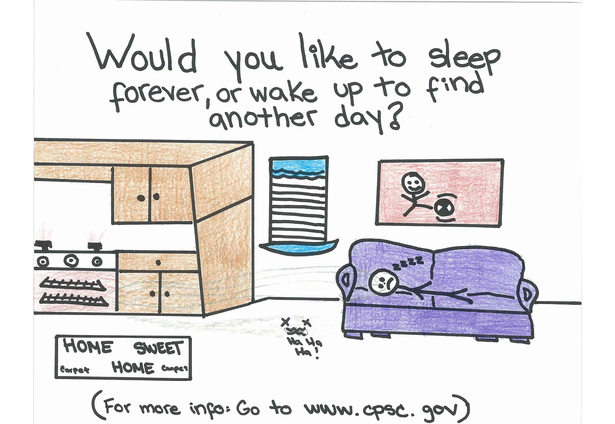 Would you like to sleep
forever, or wake up to find
another day?
zzzz
X X
Ha Ha
Ha!
HOME SWEET
Carpet HOME Carpet
(For more info: Go to www.cpsc.gov)